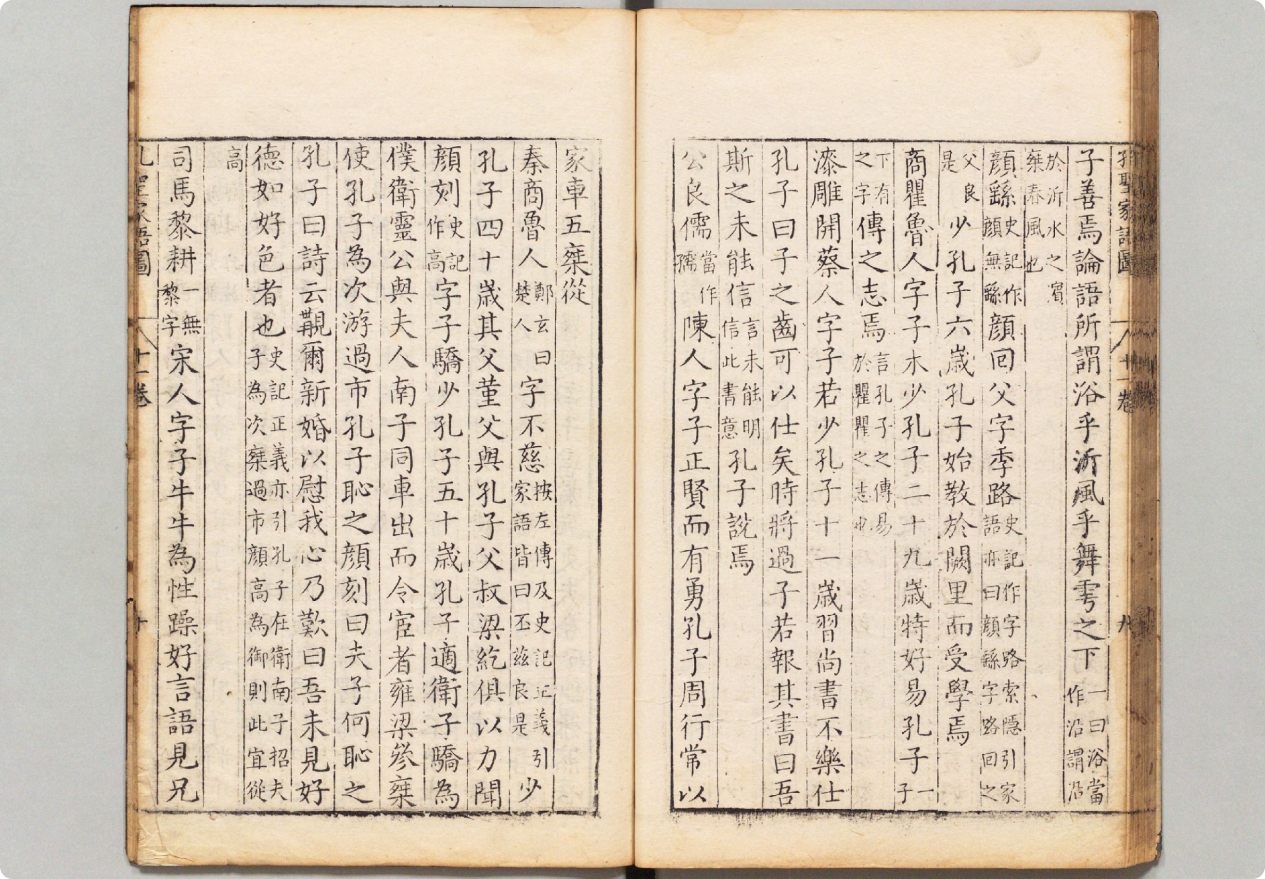 孔聖家語圖 八 十一卷 九
子善焉論語所謂浴乎沂風乎舞雩之下一曰浴當作沿謂沿
於沂水之濵乗春風也
顔繇史記作顔無繇顔回父字季路史記作字路索隱引家語亦曰顔繇字路回之
父良是少孔子六歲孔子始教於闕里而受學焉
商瞿魯人字子木少孔子二十九歲特好易孔子一子
下有之字傳之志焉言孔子之傳易於瞿瞿之志也
漆雕開蔡人字子若少孔子十一歲習尚書不樂仕
孔子曰子之齒可以仕矣時將過子若報其書曰吾
斯之未能信言未能明信此書意孔子說焉
公良儒當作孺陳人字子正賢而有勇孔子周行常以
家車五乗從
秦商魯人鄭玄曰楚人字不慈按左傳及史記正義引家語皆曰丕兹良是少
孔子四十歲其父董父與孔子父叔梁紇俱以力聞
顔刻史記作高字子驕少孔子五十歲孔子適衛子驕為
僕衛靈公與夫人南子同車出而令宦者雍梁參乗
使孔子為次游過市孔子恥之顔刻曰夫子何恥之
孔子曰詩云覯爾新婚以慰我心乃歎曰吾未見好
德如好色者也史記正義亦引孔子在衛南子招夫子為次乗過市顔高為御則此宜從
高
司馬黎耕一無黎字宋人字子牛牛為性躁好言語見兄
孔聖家語圖 八 十一卷 十